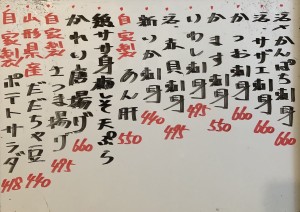 活、かんぱち刺身 660
活、サザエ刺身 660
かつお刺身 660
かます刺身 550
いわし刺身 495
活、赤貝刺身 495
新いか刺身 440
自家製 あん肝 550
鶏ササ身梅しそ天ぷら
かれい唐揚げ 660
自家製 さつま揚げ 495
山形県産 だだちゃ豆 440
自家製 ポテトサラダ 418